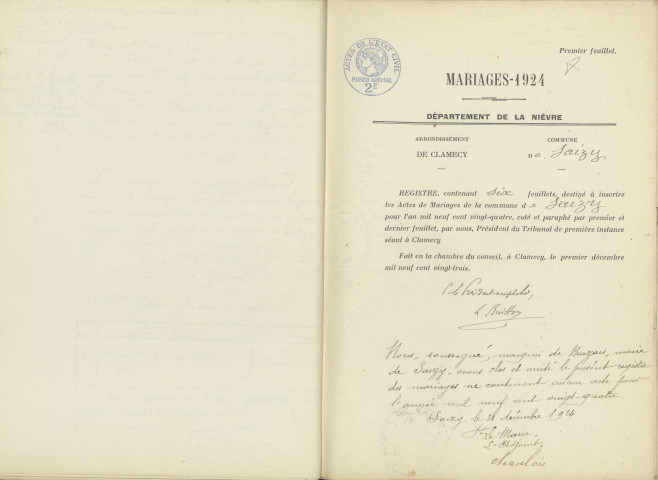 Premier feuillet.
ACTES DE L'ÉTAT CIVIL
PAPIER SPÉCIAL
2E
MARIAGES-1924
DÉPARTEMENT DE LA NIÈVRE
ARRONDISSEMENT
DE CLAMECY
COMMUNE
De Saizy
REGISTRE, contenant six feuillets, destiné à inscrire
les Actes de Mariages de la commune de Saizy
pour l'an mil neuf cent vingt-quatre, coté et paraphé par premier et
dernier feuillet, par nous, Président du Tribunal de première instance
séant à Clamecy
Fait en la chambre du conseil, à Clamecy, le premier décembre
mil neuf cent vingt-trois.
P. le Président empêché,
Nous, soussigné, marquis de maire
de Saizy, avons clos et arrêté le présent registre
des mariages ne contenant aucun acte pour
l'année mil neuf cent vingt quatre.
Saizy le 31 décembre 1924
Pr Le Maire,
L'Adjoint,